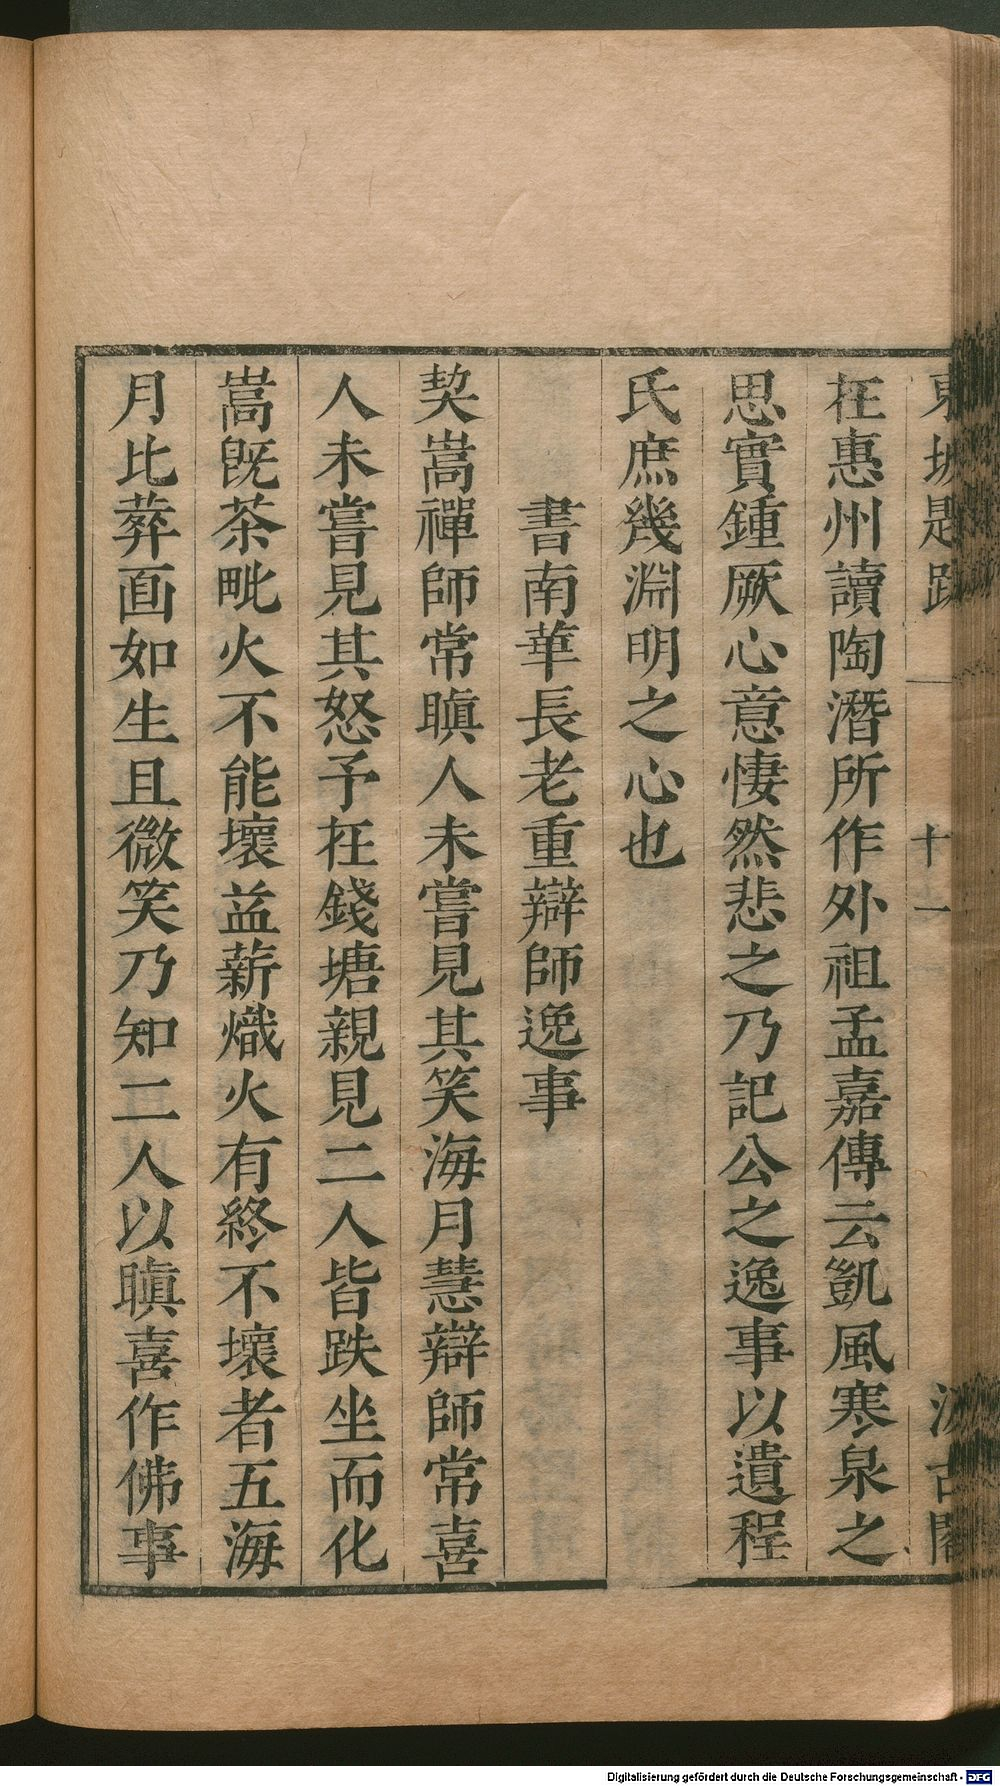 東坡題跋 一 十一 汲古閣
在惠州讀陶潛所作外祖孟嘉傳云凱風寒泉之
思實鍾厥心意悽然悲之乃記公之逸事以遺程
氏庶幾淵明之心也
書南華長老重辯師逸事
契嵩禪師常瞋人未嘗見其笑海月慧辯師常喜
人未嘗見其怒予在錢塘親見二人皆趺坐而化
嵩旣茶毗火不能壞益薪熾火有終不壞者五海
月比葬面如生且微笑乃知二人以瞋喜作佛事
Digitalisierung gefördert durch die Deutsche Forschungsgemeinschaft - DFG